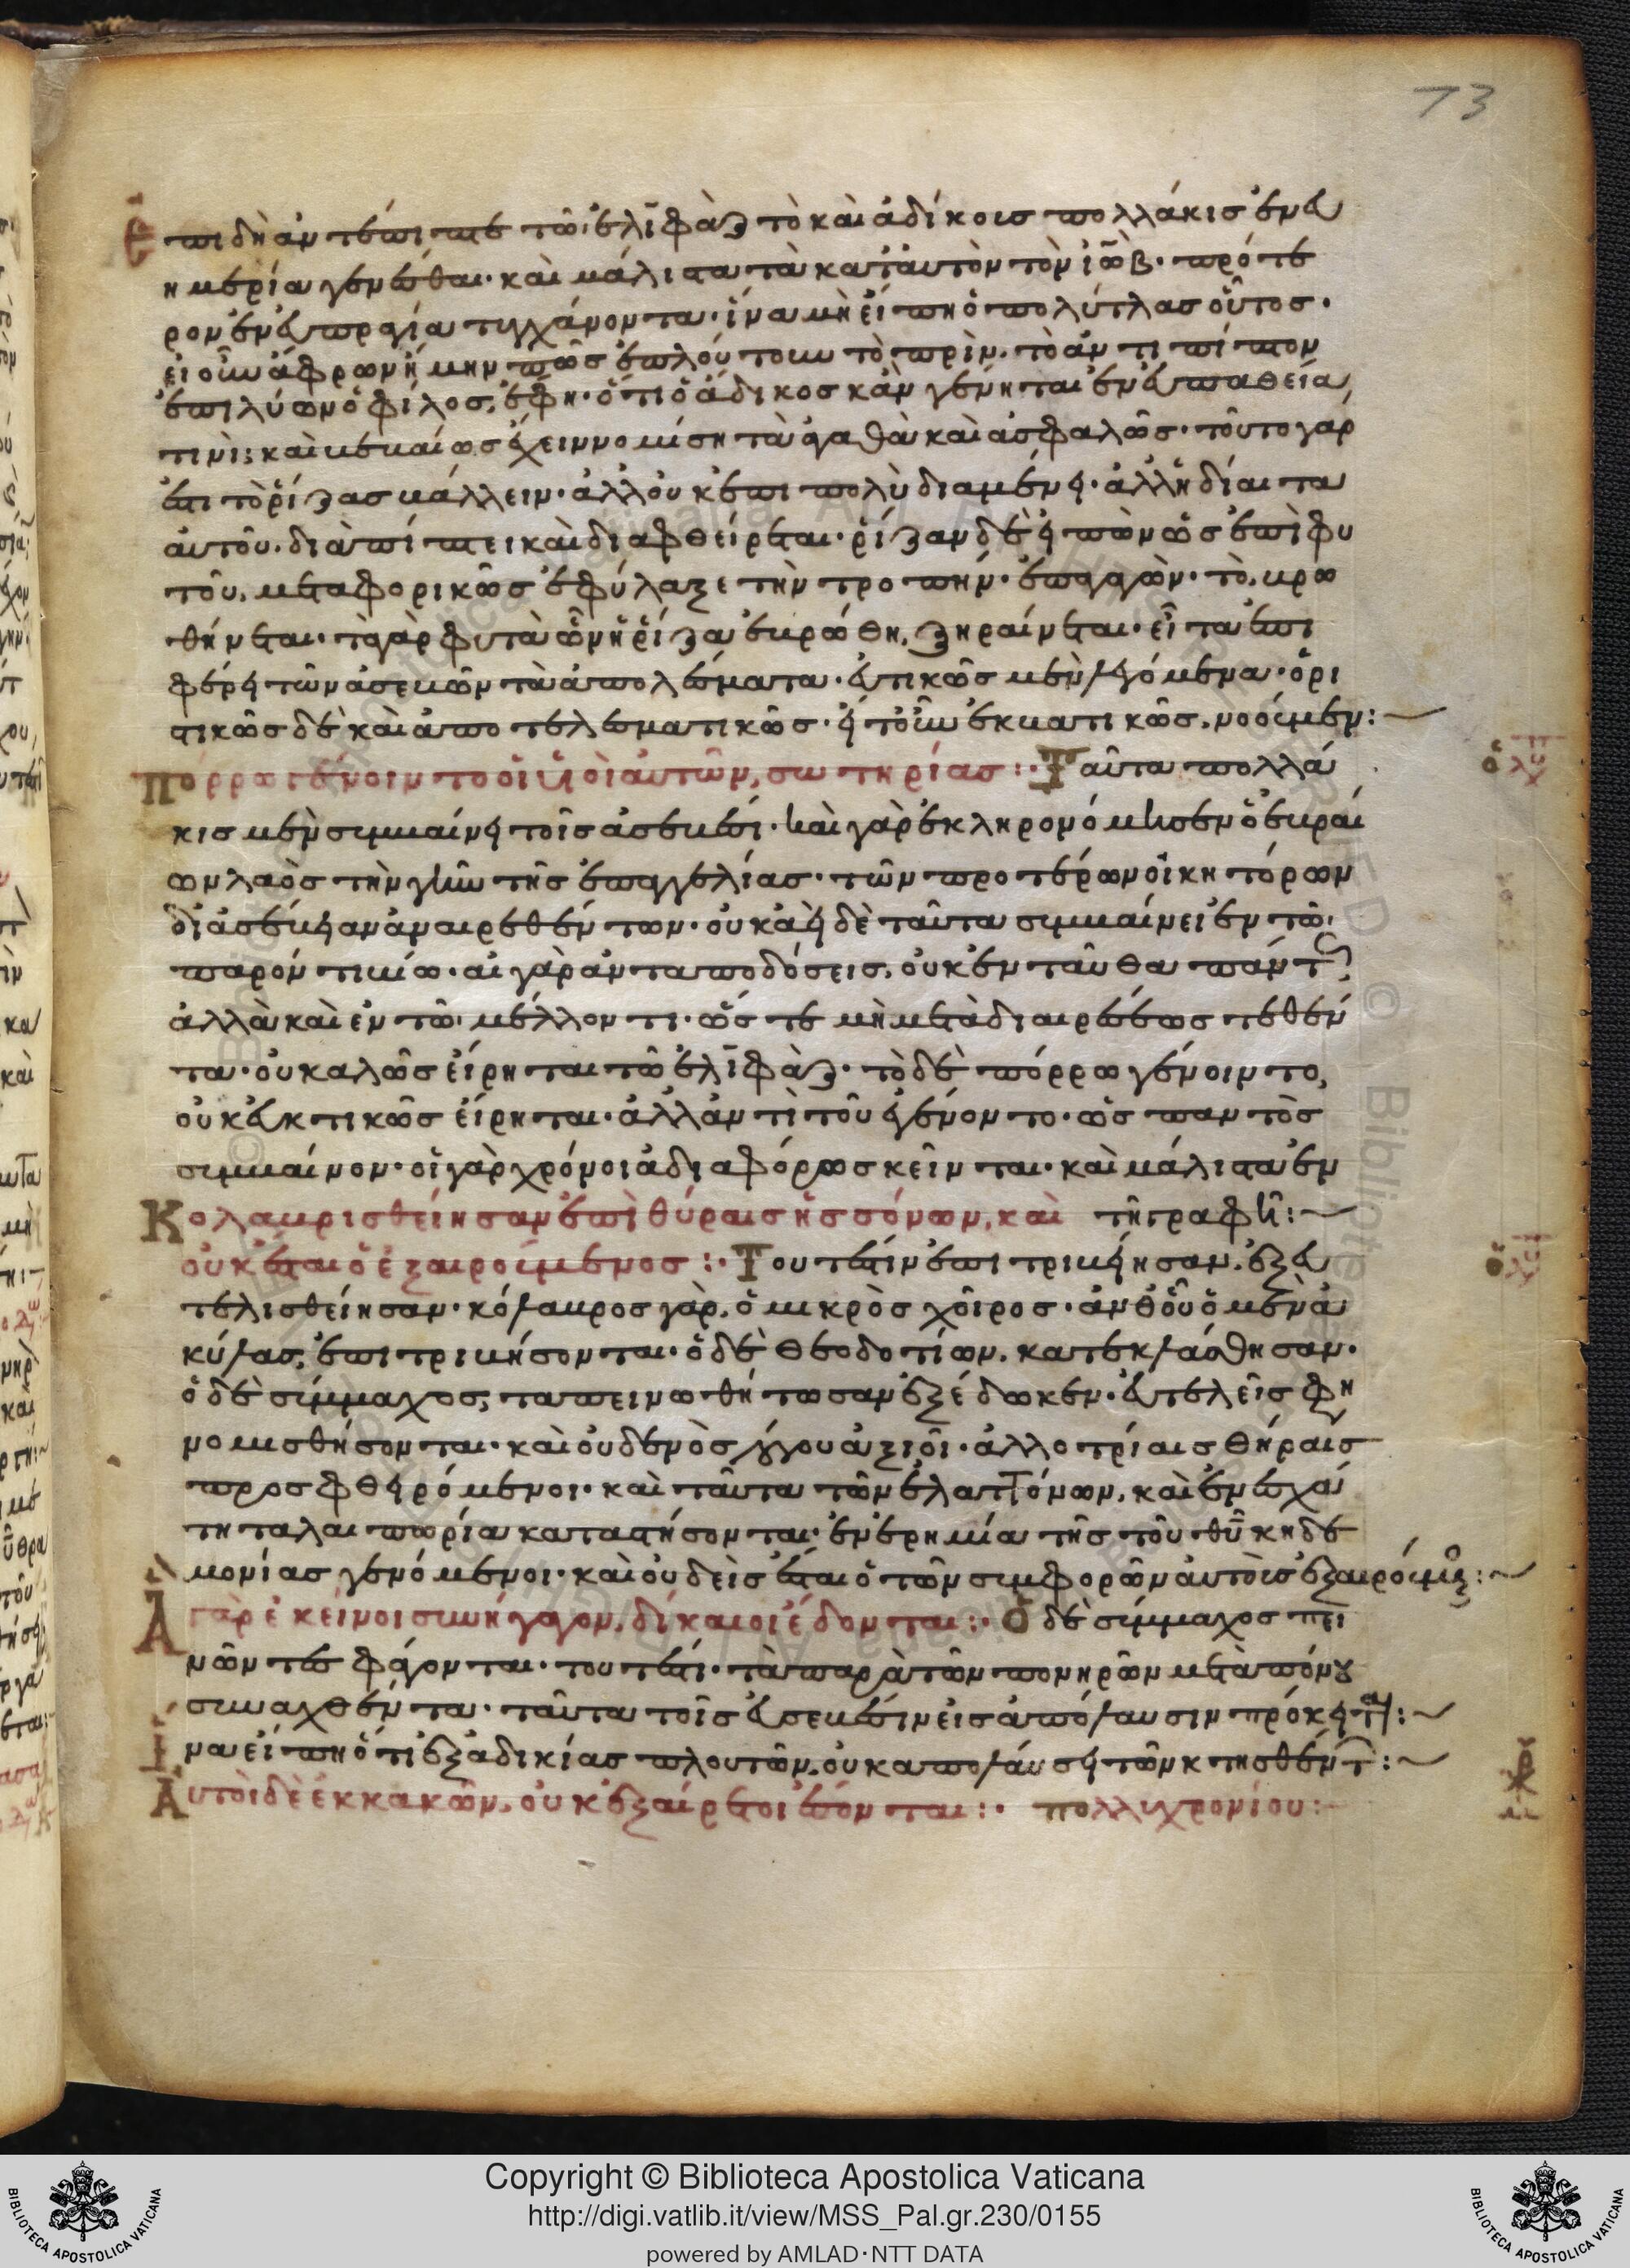 73
Ἐπιδὴ ἀντέπιπτε τῶ ἐλιφὰζ τὸ καὶ ἀδίκοις πολλάκις ἐν εὐ
ημερία γενέσθαι· καὶ μάλιστα τὰ κατ' αὐτὸν τὸν ἰώβ· πρότε
ρον ἐν εὐπραγία τυγχάνοντα· ἵνα μὴ εἴπη ὁ πολύτλας οὗτος·
εἰ οὖν ἄφρων ἤμην πῶς ἐπλούτουν τὸ πρὶν· τὸ ἀντιπίπτον
ἐπιλύων ὁ φίλος, ἔφη· ὅτι ὁ ἄδικος κἂν γένηται ἐν εὐπαθεία
τινὶ· καὶ βεβαίως ἔχειν νομίση τὰ ἀγαθὰ καὶ ἀσφαλῶς· τοῦτο γάρ
ἐστι τὸ ῥίζας βάλλειν· ἀλλ' οὐκ ἐπιπολὺ διαμένει· ἀλλ' ἡ δίαιτα
αὐτοῦ· διαπίπτει καὶ διαφθείρεται· ῥίζαν δὲ εἰπὼν ὡς ἐπὶ φυ
τοῦ, μεταφορικῶς ἐφύλαξε τὴν τροπήν· ἐπαγαγὼν· τὸ, βρω
θήσεται· τὰ γὰρ φυτὰ ὧν ἡ ῥίζα ἐβρώθη, ξηραίνεται· εἶτα ἐπι
φέρει τῶν ἀσεβῶν τὰ ἀποτελέσματα· εὐκτικῶς μὲν λεγόμενα· ὁρι
στικῶς δὲ καὶ ἀποτελεσματικῶς· ἢ γοῦν ἐκβατικῶς, νοούμενα:
Πόρρω γένοιντο οἱ υἱοὶ αὐτῶν, σωτηρίας: Ταῦτα πολλά
κις μὲν συμβαίνει τοῖς ἀσεβέσι· καὶ γὰρ ἐκληρονόμησεν ὁ ἑβραί
ων λαὸς τὴν γῆν τῆς ἐπαγγελίας· τῶν προτέρων οἰκητόρων
δι' ἀσέβειαν ἀναιρεθέντων· οὐκ ἀεὶ δὲ ταῦτα συμβαίνει ἐν τῶ
παρόντι βίω· αἱ γὰρ ἀνταποδόσεις, οὐκ ἐνταῦθα πάντως
ἀλλὰ καὶ ἐν τῶ μέλλοντι· ὥστε μὴ μετὰ διαιρέσεως τεθέν
τα· οὐ καλῶς εἴρηται τῶ ἐλιφὰζ· τὸ δὲ πόρρω γένοιντο,
οὐκ εὐκτικῶς εἴρηται· ἀλλ' ἀντὶ τοῦ ἐγένοντο· ὡς παντὸς
συμβαίνον· οἱ γὰρ χρόνοι ἀδιαφόρως κεῖνται· καὶ μάλιστα ἐν
τῆ γραφῆ:
Κολαβρισθείησαν ἐπὶ θύραις ἡσσόνων, καὶ
οὐκ ἔσται ὁ ἐξαιρούμενος: Τουτέστιν ἐπιτριβείησαν, ἐξευ
τελισθείησαν· κόλαβρος γὰρ, ὁ μικρὸς χοῖρος· ἀνθ' οὗ ὁ μὲν ἀ
κύλας, ἐπιτριβήσονται· ὁ δὲ Θεοδοτίων, κατεκλάσθησαν·
ὁ δὲ σύμμαχος, ταπεινωθήτωσαν ἐξέδωκεν· εὐτελεῖς φη
νομισθήσονται· καὶ οὐδενὸς λόγου ἄξιοι· ἀλλοτρίαις θύραις
προσφθειρόμενοι· καὶ ταῦτα τῶν ἐλαττόνων, καὶ ἐν ἐσχά
τη ταλαιπωρία καταστήσονται· ἐν ἐρημία τῆς τοῦ θυ κηδε
μονίας γενόμενοι· καὶ οὐδεὶς ἔσται ὁ τῶν συμφορῶν αὐτοὺς ἐξαιρούμενος:
Ἃ γὰρ ἐκεῖνοι συνήγαγον, δίκαιοι ἔδονται: Ὁ δὲ σύμμαχος πει
νῶντες φάγονται· τουτέστι· τὰ παρὰ τῶν πονηρῶν μετὰ πόνου
συναχθέντα· ταῦτα τοῖς εὐσεβέσιν εἰς ἀπόλαυσιν πρόκειται:
Ἵνα εἴπη ὅτι ἐξ ἀδικίας πλουτῶν, οὐκ ἀπολαύσει τῶν κτηθέντων:
Αὐτοὶ δὲ ἐκ κακῶν, οὐκ ἐξαίρετοι ἔσονται: πολυχρονίου:
Copyright © Biblioteca Apostolica Vaticana
http://digi.vatlib.it/view/MSS_Pal.gr.230/0155
powered by AMLAD·NTT DATA